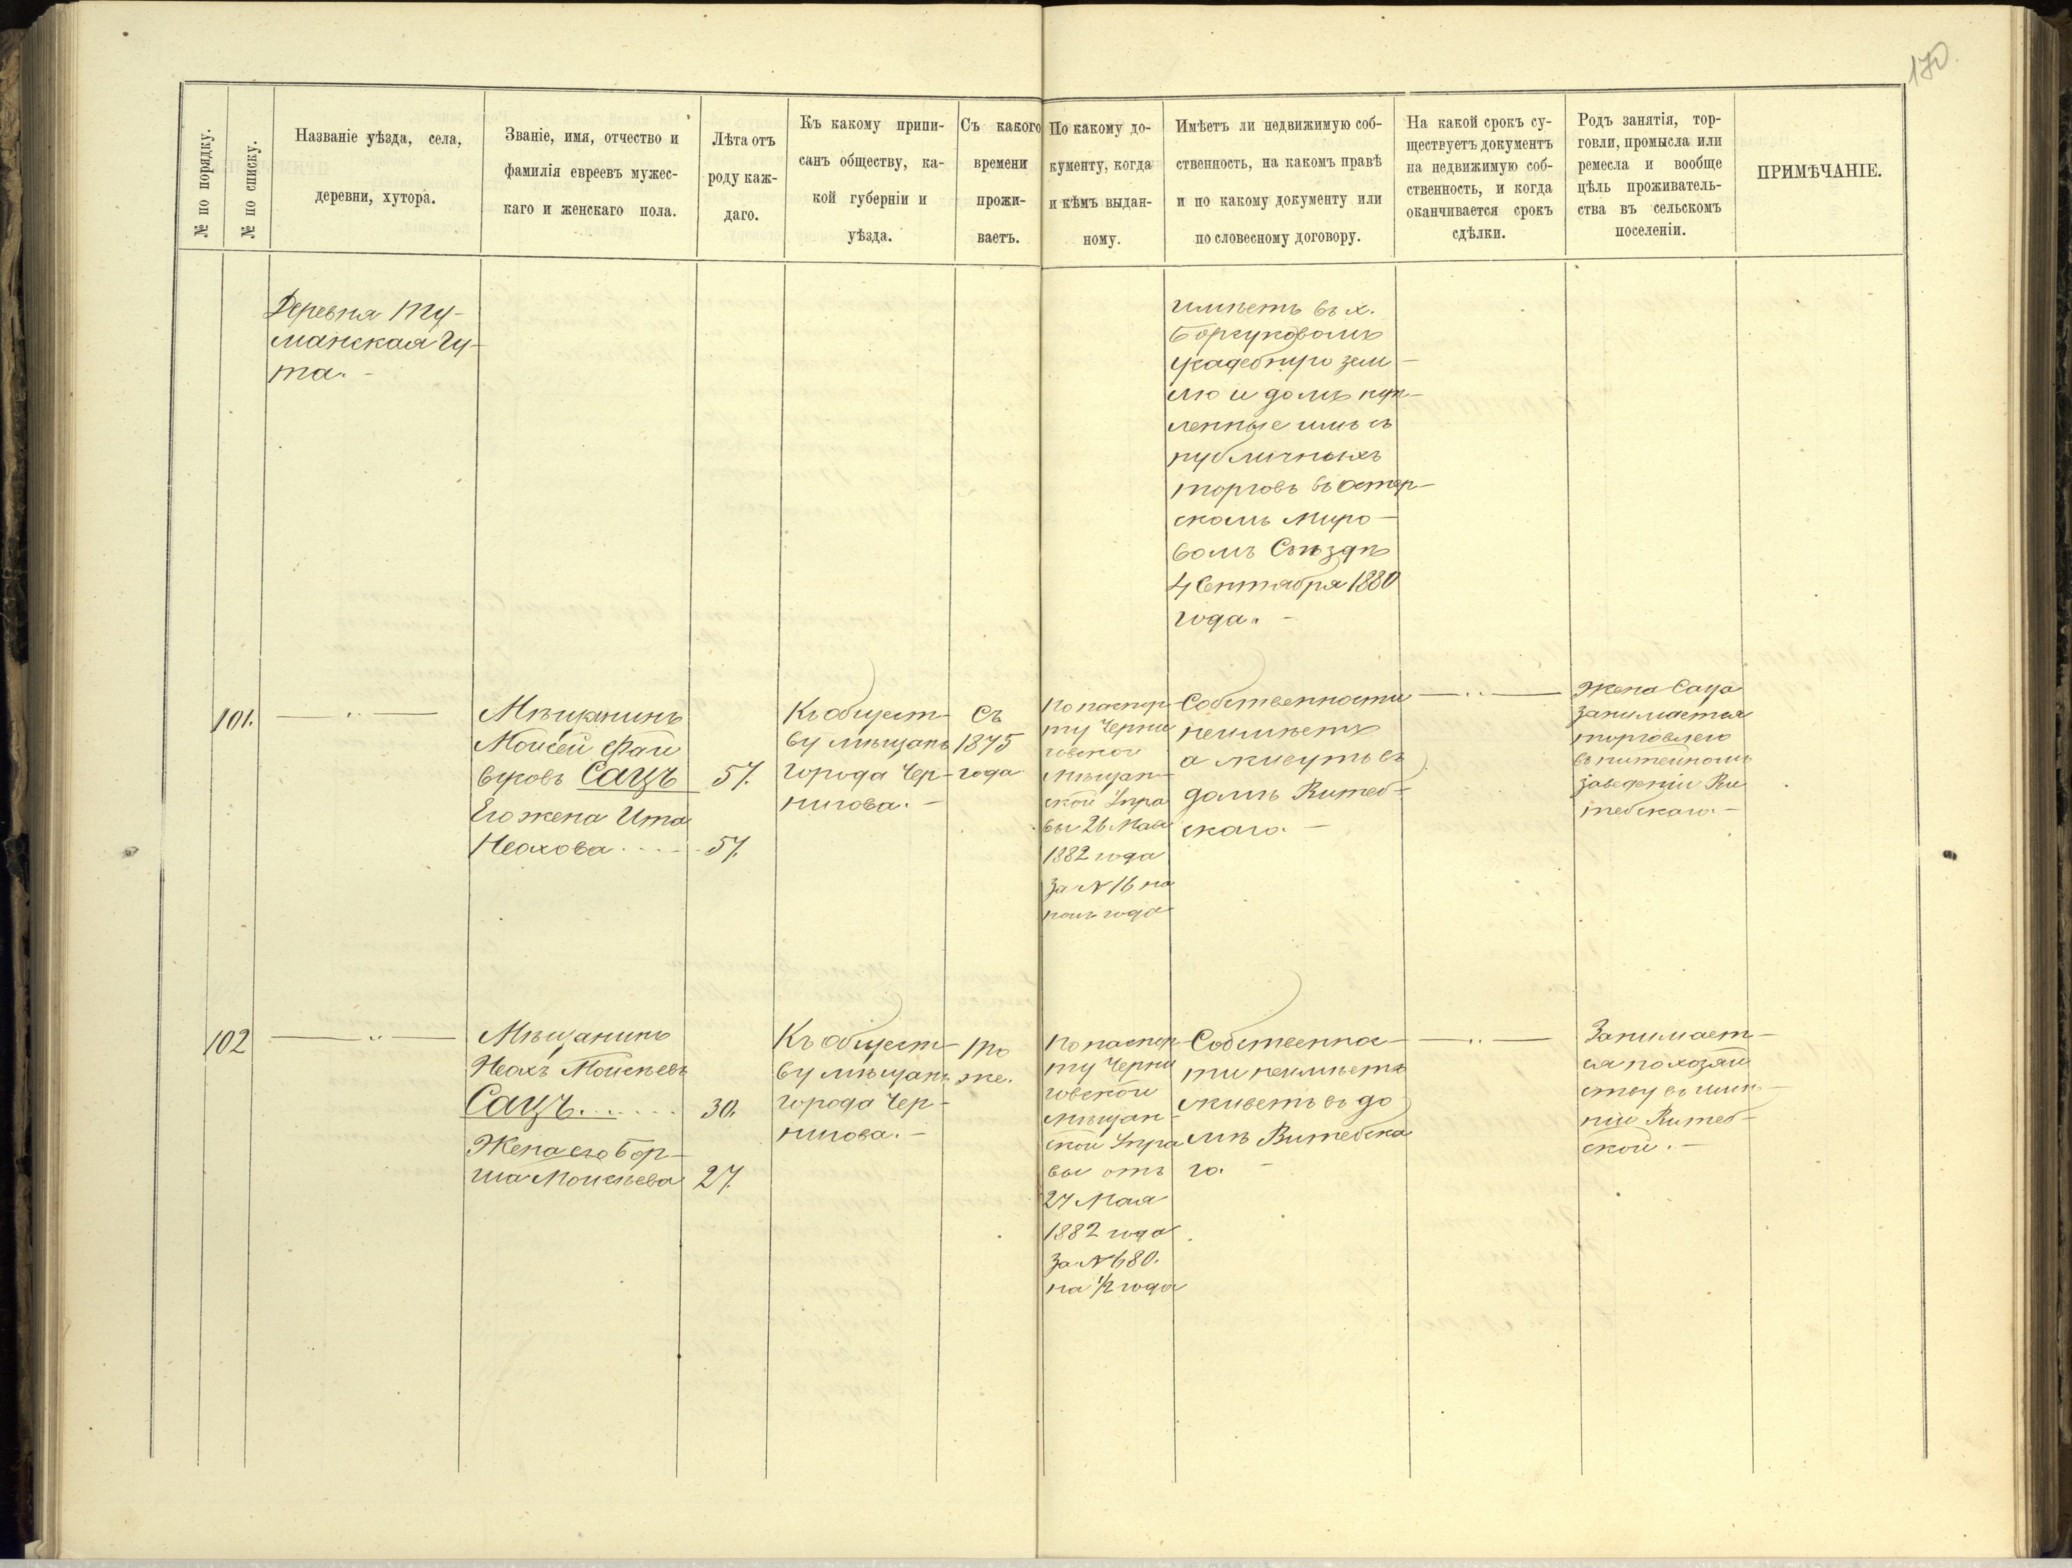 170
№ по порядку.
№ по списку.
Названіе уѣзда, села,
деревни, хутора.
Званіе, имя, отчество и
фамилія евреевъ мужес-
каго и женскаго пола.
Лѣта отъ
роду каж-
даго.
Къ какому припи-
санъ обществу, ка-
кой губерніи и
уѣзда.
Съ какого
времени
прожи-
ваетъ.
По какому до-
кументу, когда
и кѣмъ выдан-
ному.
Имѣетъ ли недвижимую соб-
ственность, на какомъ правѣ
и по какому документу или
по словесному договору.
На какой срокъ су-
ществуетъ документъ
на недвижимую соб-
ственность, и когда
оканчивается срокъ
сдѣлки.
Родъ занятія, тор-
говли, промысла или
ремесла и вообще
цѣль проживатель-
ства въ сельскомъ
поселеніи.
ПРИМѢЧАНІЕ.
Деревня Ту-
манская Гу-
та. -
имѣетъ въ х.
усадебную зем-
лю и домъ куп-
ленные имъ съ
публичныхъ
торговъ въ Остер-
скомъ Миро-
вомъ Съѣздѣ
4 Сентября 1880
года. -
101.
Мѣщанинъ
Моисей Фай
вуковъ Сацъ
57.
Его жена Ита
Неахова
57.
Къ общест-
ву мѣщанъ
города Чер-
нигова. -
Съ
1875
года
По паспор-
ту Черни
говской
мѣщан-
ской Упра
вы 26 Мая
1882 года
за № 16 на
годъ
Собственности
неимѣетъ
а живутъ въ
домѣ Витеб-
скаго. -
Жена Саца
занимается
торговлею
въ питейномъ
заведеніи Ви
тебскаго. -
102
Мѣщанинъ
Неахъ Моисеевъ
Сацъ
30.
Жена его Бор-
ша Моисѣева
27.
Къ общест-
ву мѣщанъ
города Чер-
нигова. -
То
же.
По паспор-
ту Черни
говской
мѣщан-
ской Упра
вы отъ
27 Мая
1882 года
за № 680.
на 1/2 года
Собственнос-
ти неимѣетъ
живетъ въ до
мѣ Витебска
го. -
Занимает-
ся по хозяй
ству въ имѣ-
ніи Витеб-
ской. -